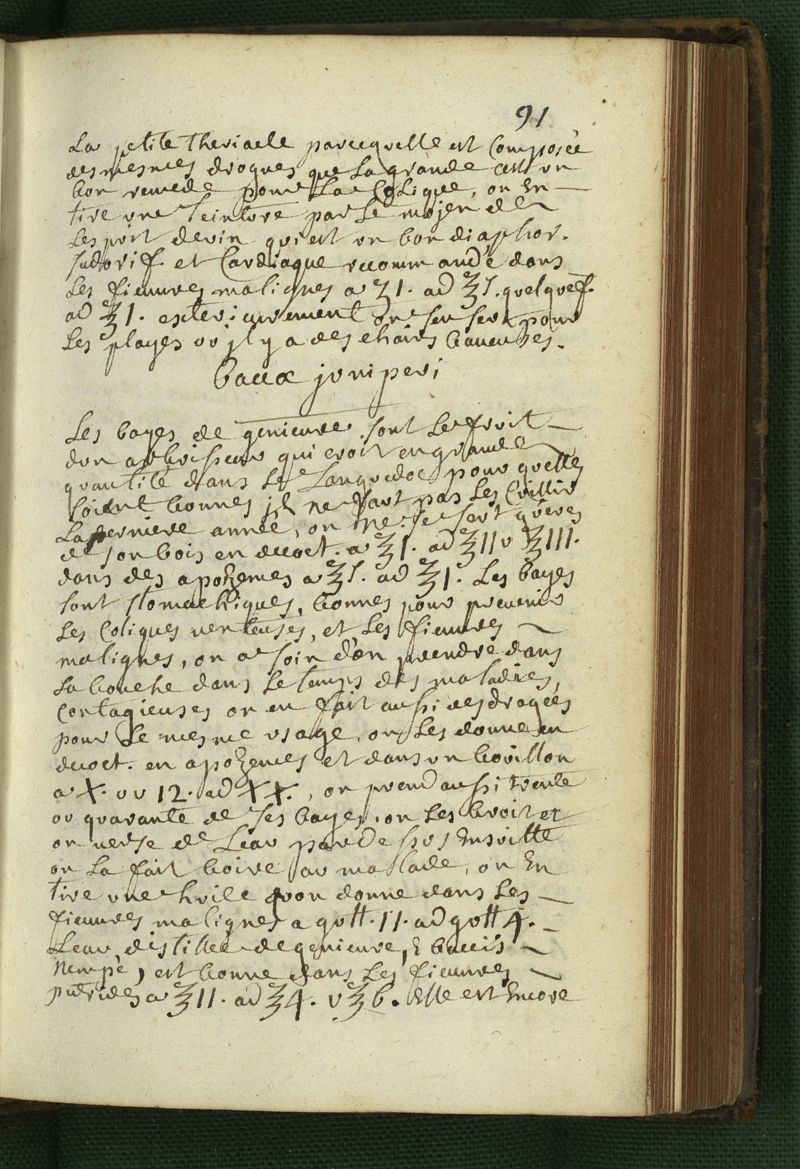 91
La petite theriacle parcequelle est composée
des mesmes drogues que la grande cest un
bon remede pour la Colique, on En —
tire une teinture par le mojen de
Lesprit devin qui est un bon diaphor.
sudorif. et Cardiaque recommandé dans
les fieuvres malignes a ʒ1. ad ʒs. quelquef.
ad ʒ1. exterieurement on sen sert pour
Les playes ou jl y a des chairs baueuses.
baccæ juniperi
Les bayes de genieure sont le fruit —
dun arbrisseau qui croit en grande
quantité dans le Languedoc pour quelles
soient bonnes jl ne faut pas les Cuillir
La derniere année, on ne se sert gueres
de son bois en decoct. a ʒ1. ad ʒ11 v ʒ111.
dans des apozemes a ʒs. ad ʒ1. Les bayes
sont stomachiques, bonnes pour preuenir
Les Coliques venteuses, et Les fieuvres —
malignes, on a soin d'en prendre dans
La bouche dans le temps des maladies,
Contagieuses on en fait aussi des dragées
pour Le mesme usage, on Les donne en
decoct. en apozemes et dans un bouillon
a X. ou 12. ad XX., on prend aussi trente
ou quarante de ses bayes, on les broit et
on verse de Leau par dessus Ensuitte
on La fait boire au malade, on En
tire une huile quon donne dans Les —
fieuvres malignes a gutt. 11. ad gutt 4. —
Leau distillée de genieure, E baccis —
nempè, est bonne dans Les fieuvres —
putrides a ʒ11. ad ʒ4. v ʒ6. Elle est Encore